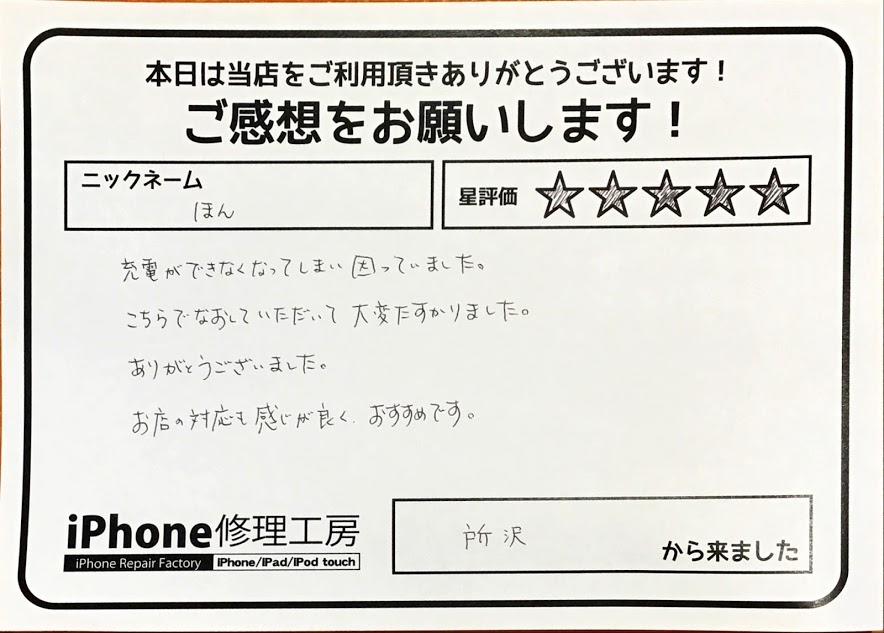 本日は当店をご利用頂きありがとうございます！
ご感想をお願いします！
ニックネーム
ほん
星評価
充電ができなくなってしまい困っていました。
こちらでなおしていただいて大変たすかりました。
ありがとうございました。
お店の対応も感じが良く、おすすめです。
iPhone修理工房
iPhone Repair Factory iPhone/iPad/iPod touch
所沢
から来ました